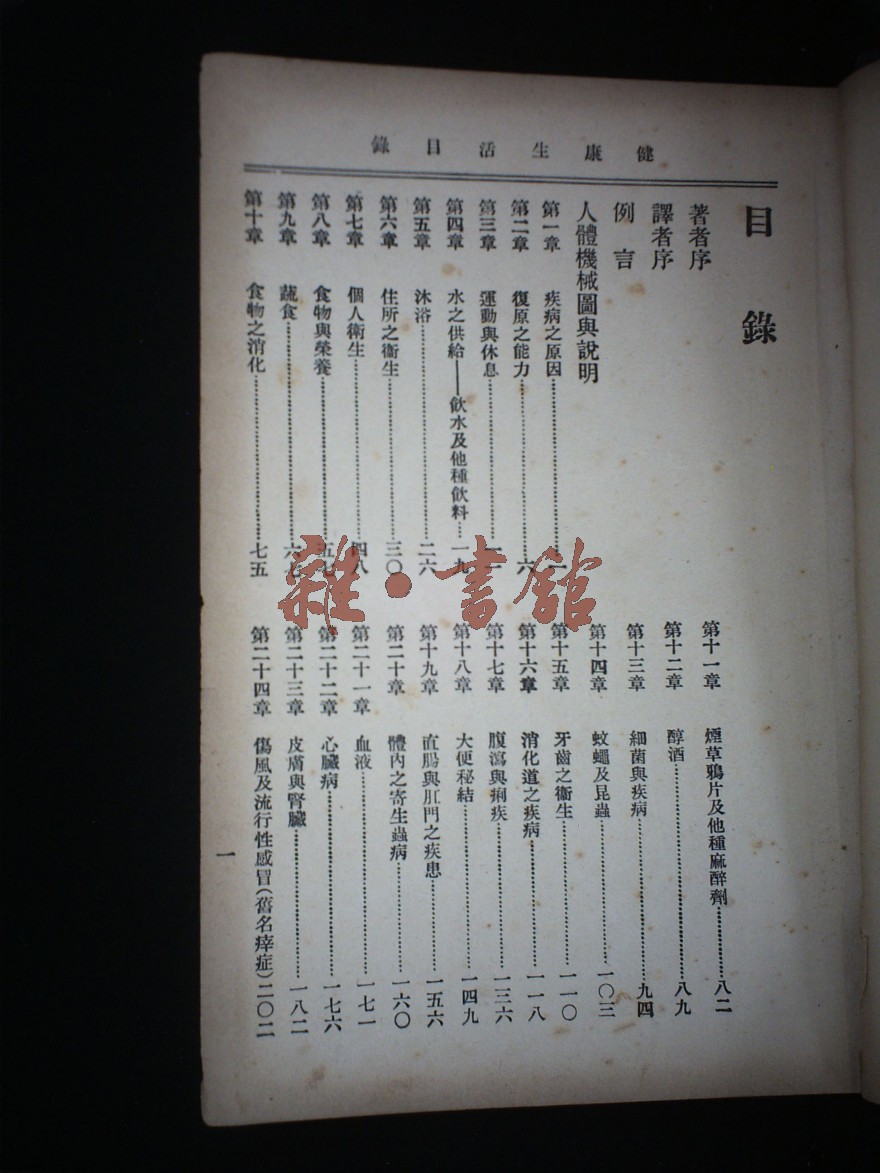 健康生活目錄
目錄
著者序
譯者序
例言
人體機械圖與說明
第一章 疾病之原因 一
第二章 復原之能力 六
第三章 運動與休息
第四章 水之供給——飲水及他種飲料 一九
第五章 沐浴 二六
第六章 住所之衞生 三〇
第七章 個人衞生 四八
第八章 食物與榮養 五七
第九章 蔬食
第十章 食物之消化 七五
第十一章 煙草鴉片及他種麻醉劑 八二
第十二章 醇酒 八九
第十三章 細菌與疾病 九四
第十四章 蚊蠅及昆蟲 一〇三
第十五章 牙齒之衞生 一一〇
第十六章 消化道之疾病 一一八
第十七章 腹瀉與痢疾 一三六
第十八章 大便秘結 一四九
第十九章 直腸與肛門之疾患 一五六
第二十章 體內之寄生蟲病 一六〇
第二十一章 血液 一七一
第二十二章 心臟病 一七六
第二十三章 皮膚與腎臟 一八二
第二十四章 傷風及流行性感冒(舊名瘁症) 二〇二
一
雜·書館